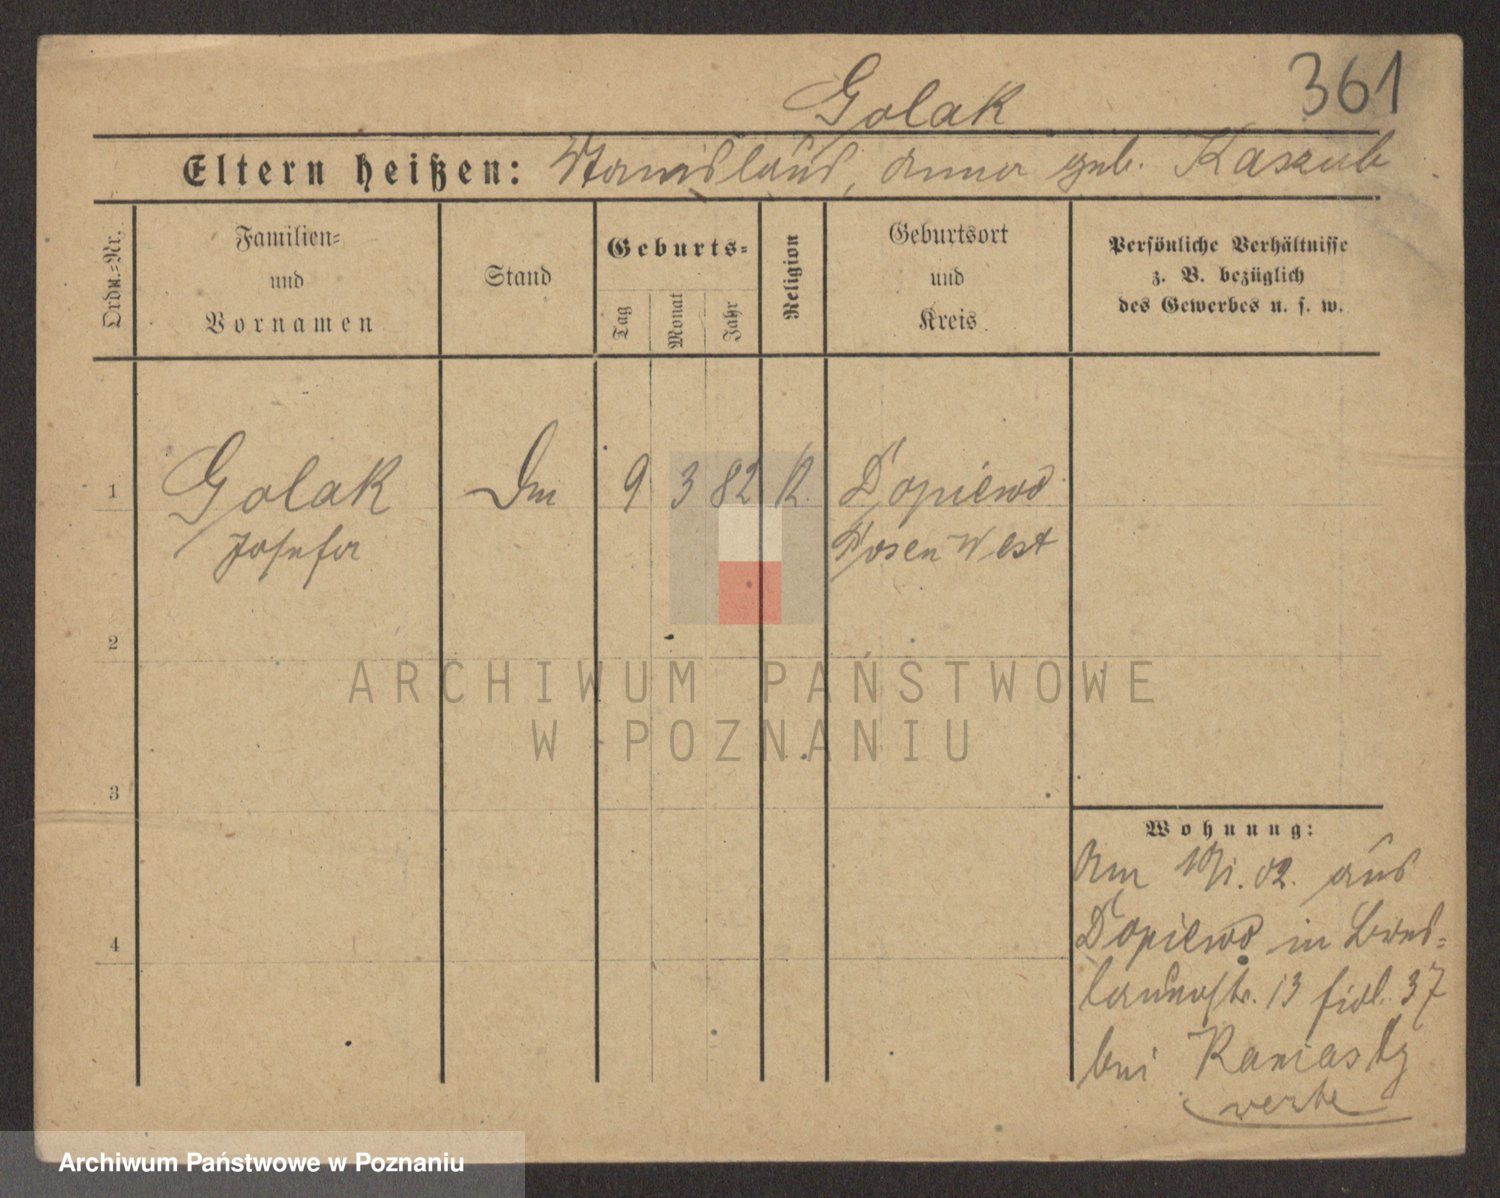 361
Golak
Eltern heißen: Stanislaus, Anna geb. Kaszub
Ordn.=Nr.
Familien=
und
Vornamen
Stand
Geburts=
Tag
Monat
Jahr
Religion
Geburtsort
und
Kreis
Persönliche Verhältnisse
z. B. bezüglich
des Gewerbes u. s. w.
1
Golak
Josefa
9 3 82 K.
Dopiewo
Posen West
2
3
4
ARCHIWUM PAŃSTWOWE
W POZNANIU
Wohnung:
Am 10/1. 02. aus
Dopiewo in Bres-
lauerstr. 13 37
bei
Archiwum Państwowe w Poznaniu